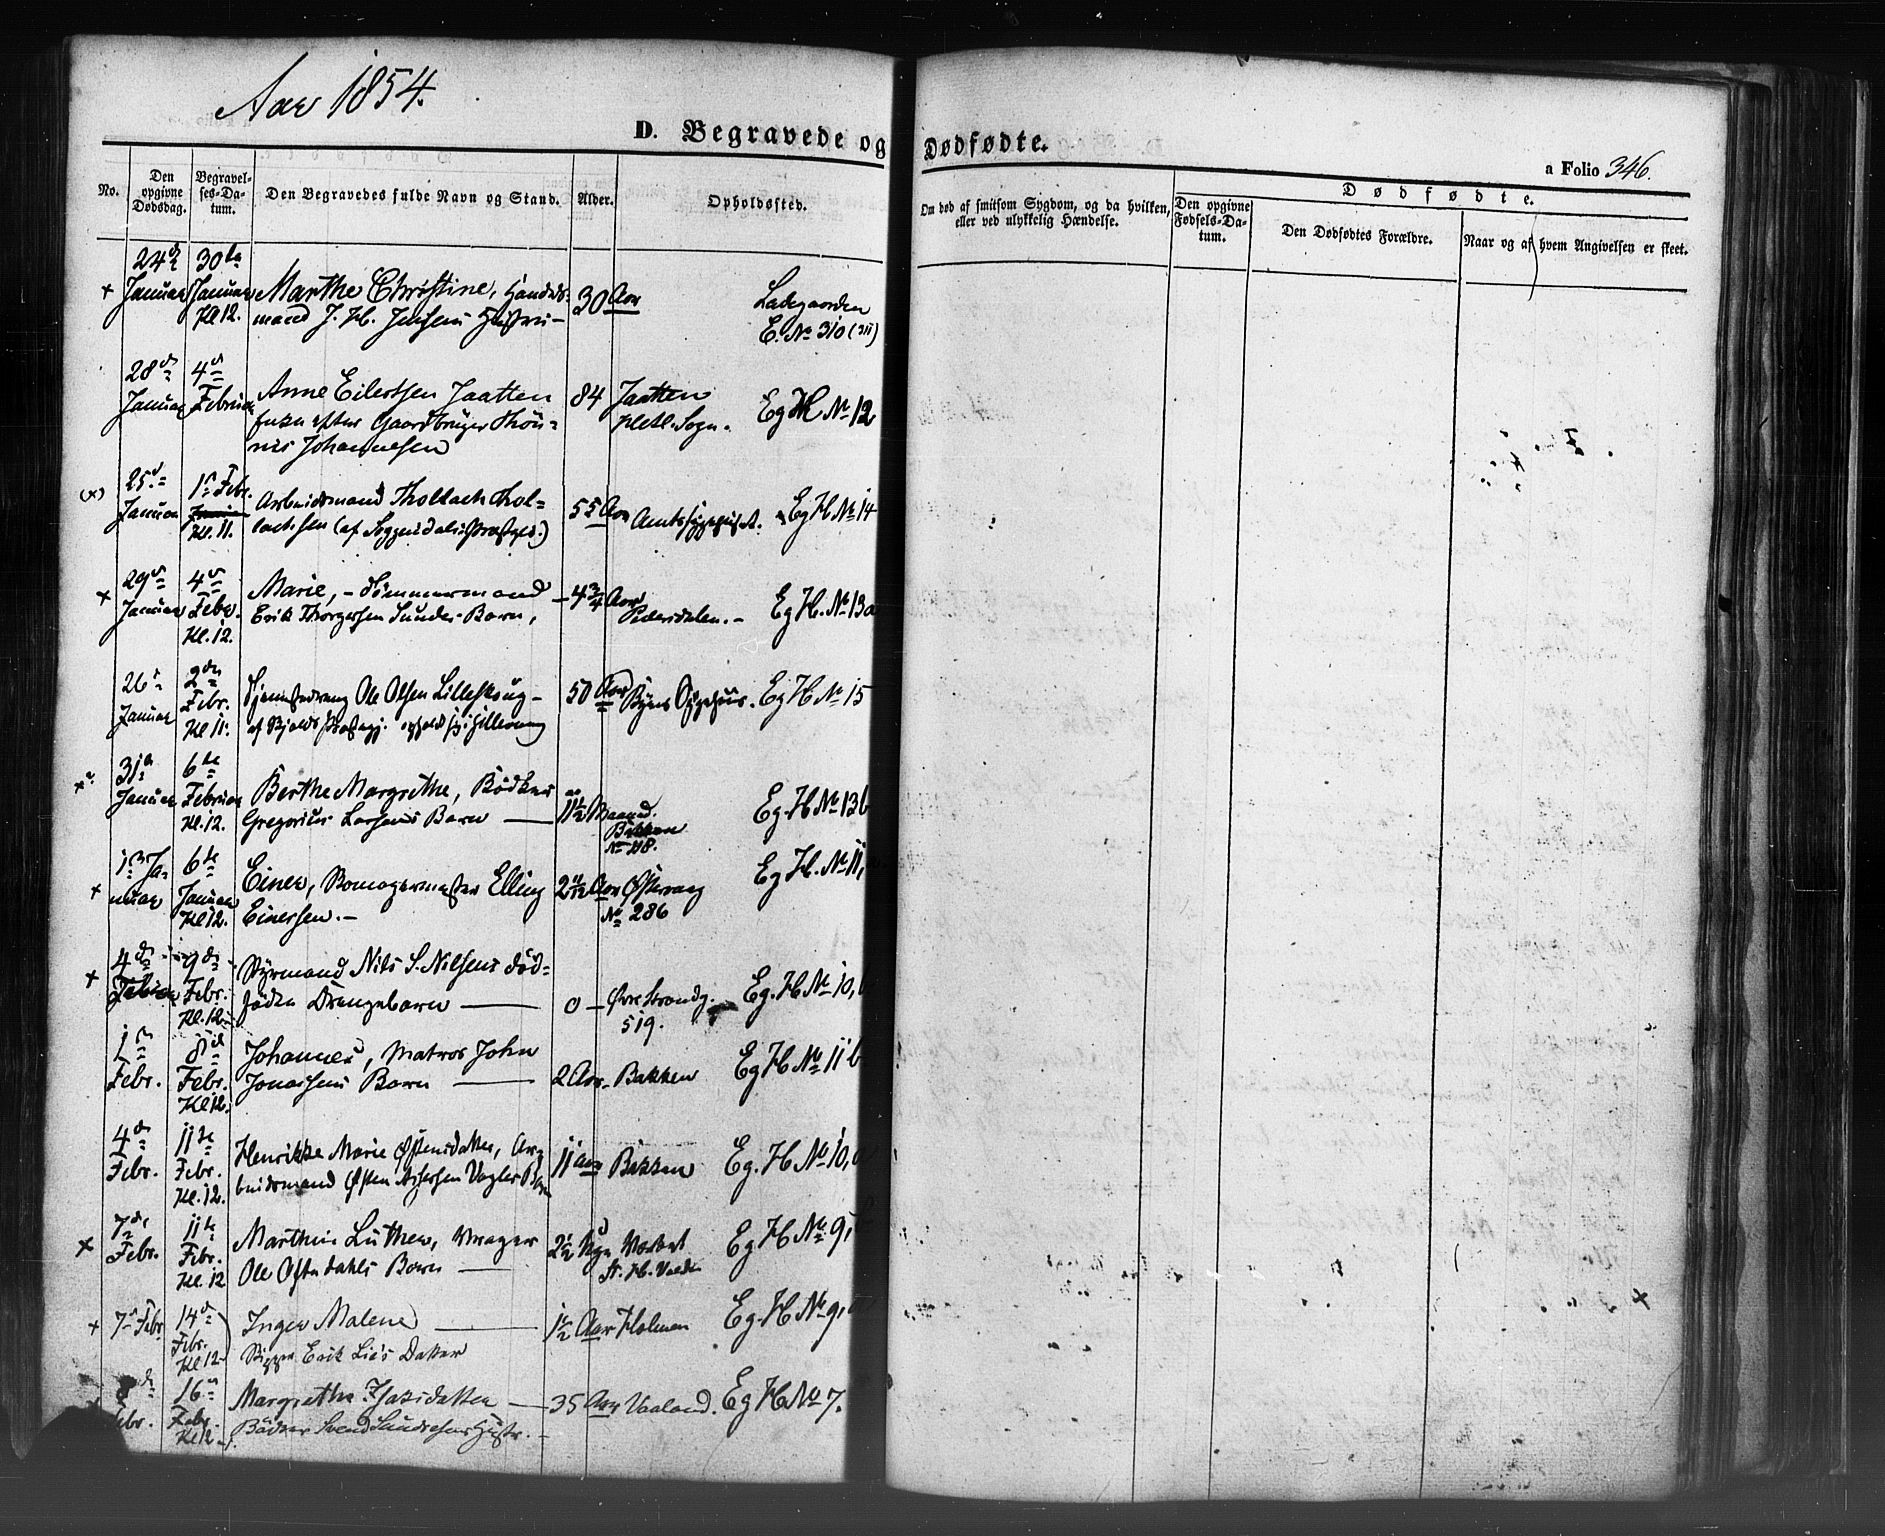 Aar 1854.
D. Begravede og Dødfødte.
a Folio 346.
No.
Den opgivne Dødsdag.
Begravelses-Datum.
Den Begravedes fulde Navn og Stand.
Alder.
Opholdssted.
Om død af smitsom Sygdom, og da hvilken, eller ved ulykkelig Hændelse.
Dødfødte.
Den opgivne Fødsels-Datum.
Den Dødfødtes Forældre.
Naar og af hvem Angivelsen er skeet.
24de 30te
+ Januar Januar Marthe Christine, 30 Aar Ladegaarden
Kl 12. mand J. H. Jensens Hustru – E. No 310 (311)
28de 4de
Januar Februar Anne Eilertsen Jaatten 84 Jaatten Eg H No 12
Enke efter Gaardbruger Thön- Hetl. Sogn.
nis Johannesen
25de 1ste Febr.
(+) Januar Arbeidsmand Thollach Thol- 55 Aar Amtssygehuset. Eg H No 14
Kl. 11. lachsen (af Soggendals Præstegj.)
29de 4de
+ Januar Febr. Marie, – Tömmermand – 4 3/4 Aar Eg H. No 13a
Kl. 12. Erik Thorgersen Sundes Barn, Pedersdalen. –
26de 2den
Januar Febr. Ole Olsen Lilleskoug – 50 Aar Byens Sygehuus. Eg H No 15
Kl 11. af
31te 6te
Januar Februar Berthe Margrethe, Bødker 11 1/2 Maaned. Eg. H No 13b
Kl. 12. Gregorius Larsens Barn — Bakken
No
1ste Ja- 6te
+ nuar Januar Einer, Elling 2 11/12 Aar Østervaag Eg H. No 11,
Kl 12. Einersen. – No 286
4de 9de
+ Febr. Styrmand Nils S. Nilsens död-
Kl. 12 födte Drengebarn — 0 – Øvre Strandg. Eg. H No 10,
519.
1ste 8de
Febr. Febr. Johannes, Matros John
Kl 12. Jonassens Barn — 2 Aar – Bakken Eg H No 11b
4de 11te
Febr. Febr. Henrikke Marie Østensdatter, Ar- 11 Aar Bakken Eg. H No 10,
Kl. 12. beidsmand Østen Vagles Barn
7de 11te
+ Febr. Febr. Marthin Luther, Vrager 2 1/2 Eg H No 9,
Kl. 12 Ole Barn —
+ 7de Febr 14de Inger Malene — 1 1/2 Aar Holmen Eg. H No 9,
Febr. Skipper Erik Lies Datter
Kl 12
8de 16de Margrethe — 35 Aar Vaaland. Eg H No 7.
Febr. Febr. Bödker Svend Hustr. –
Kl 12